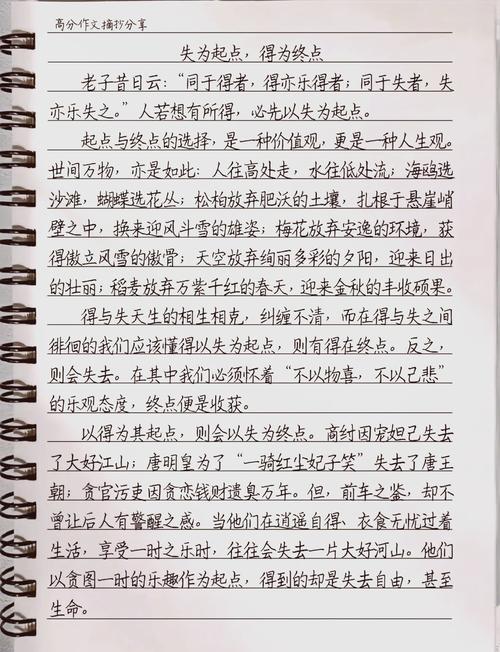 高分作文摘抄分享
失为起点，得为终点
老子昔日云：“同于得者，得亦乐得者；同于失者，失
亦乐失之。”人若想有所得，必先以失为起点。
起点与终点的选择，是一种价值观，更是一种人生观。
世间万物，亦是如此：人往高处走，水往低处流；海鸥选
沙滩，蝴蝶选花丛；松柏放弃肥沃的土壤，扎根于悬崖峭
壁之中，换来迎风斗雪的雄姿；梅花放弃安逸的环境，获
得傲立风雪的傲骨；天空放弃绚丽多彩的夕阳，迎来日出
的壮丽；稻麦放弃万紫千红的春天，迎来金秋的丰收硕果。
得与失天生的相生相克，纠缠不清，而在得与失之间
徘徊的我们应该懂得以失为起点，则有得在终点。反之，
则会失去。在其中我们必须怀着“不以物喜，不以己悲”
的乐观态度，终点便是收获。
以得为其起点，则会以失为终点。商纣因宠妲己失去
了大好江山；唐明皇为了“一骑红尘妃子笑”失去了唐王
朝；贪官污吏因贪恋钱财遗臭万年。但，前车之鉴，却不
曾让后人有警醒之感。当他们在逍遥自得、衣食无忧过着
生活，享受一时之乐时，往往会失去一片大好河山。他们
以贪图一时的乐趣作为起点，得到的却是失去自由，甚至
生命。